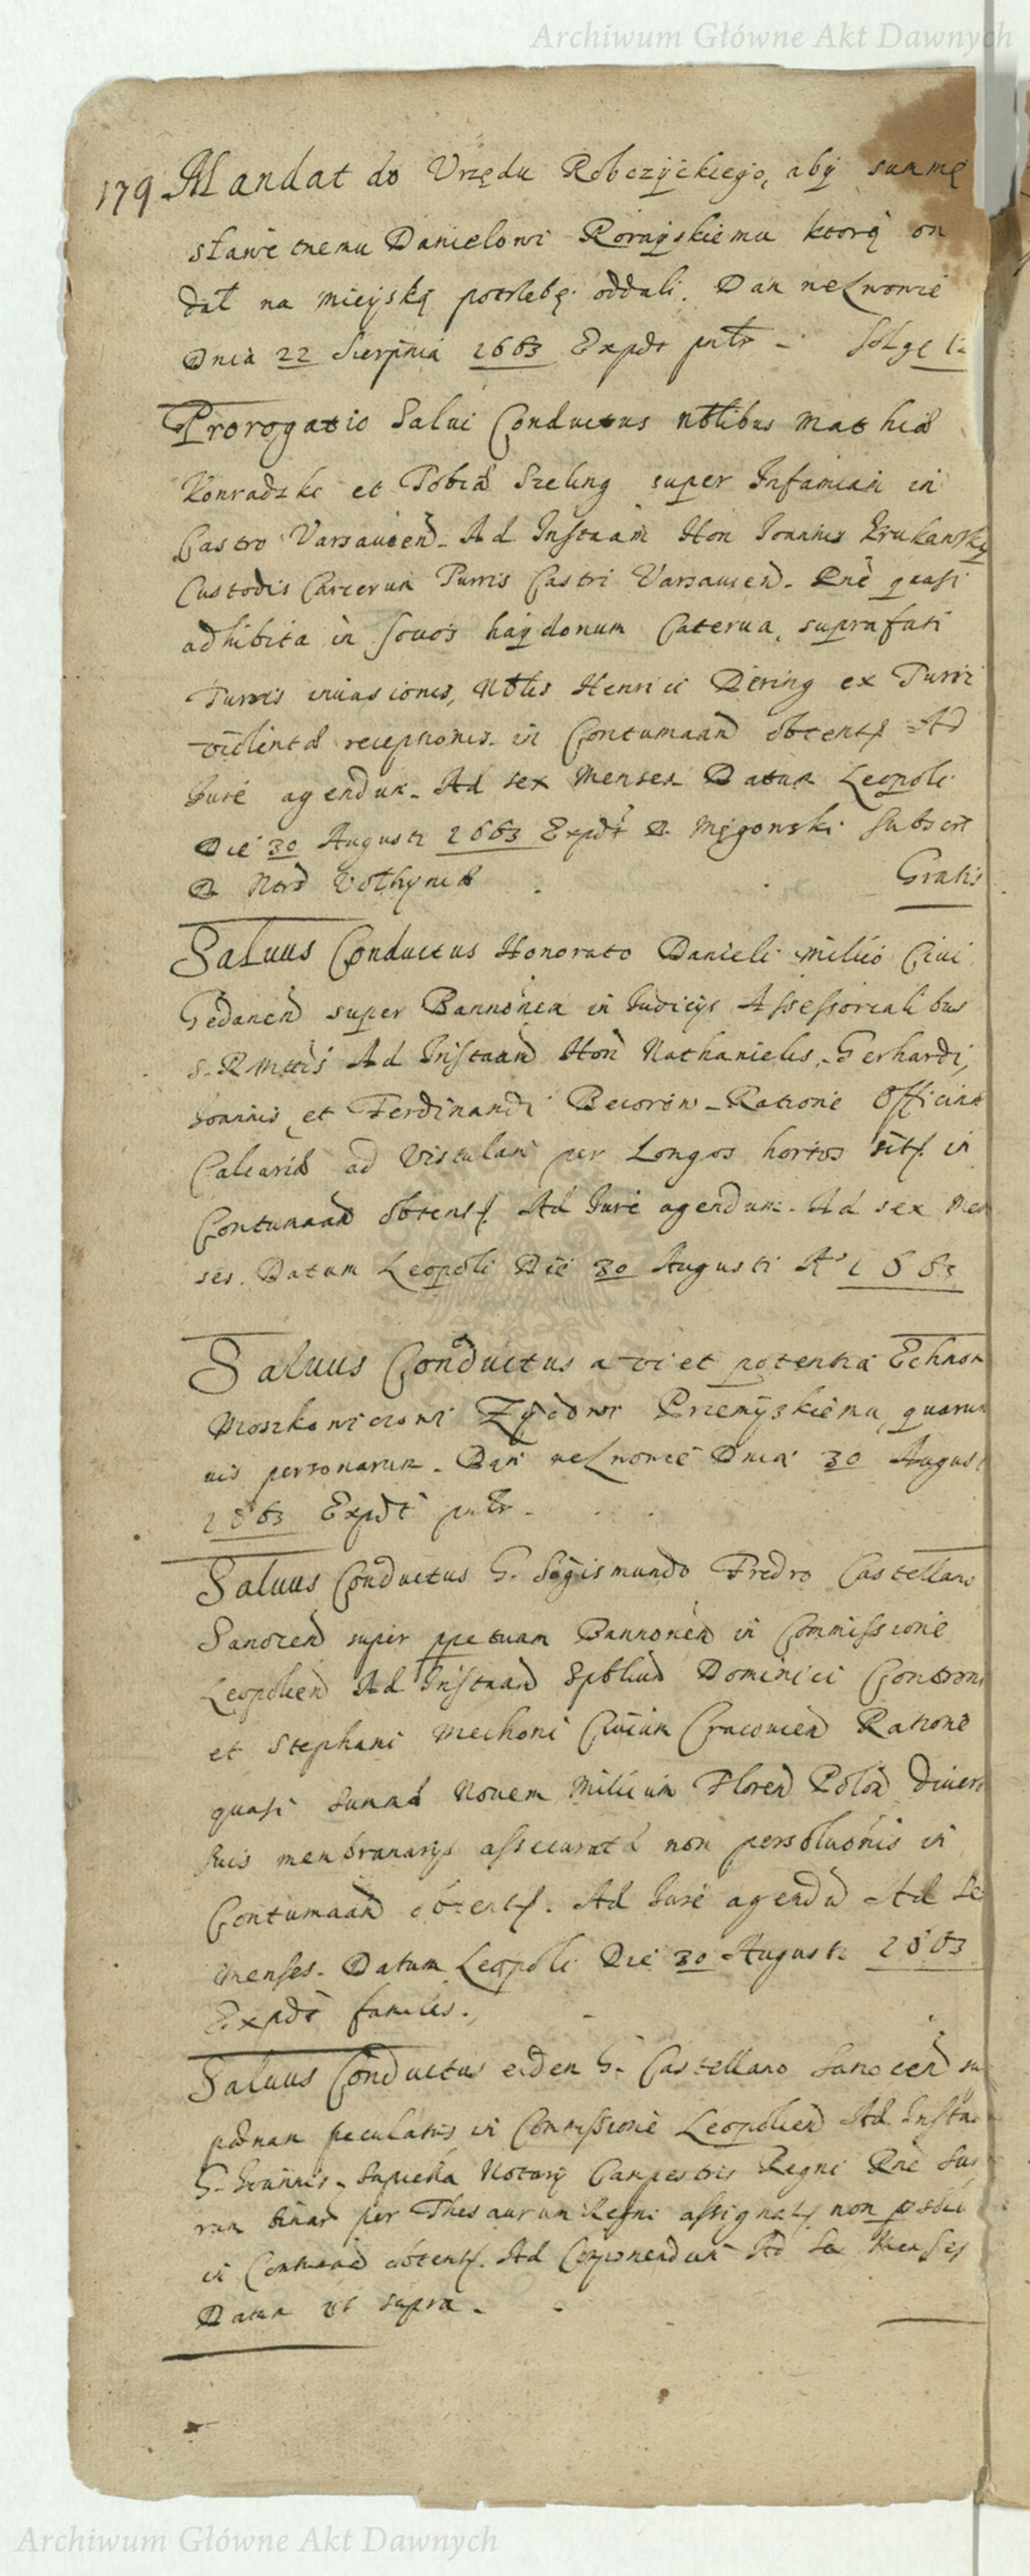 Archiwum Główne Akt Dawnych
179 Mandat do Urzędu Robczyckiego, aby summę
sławetnemu Danielowi Rorayskiemu ktorą on
dał na mieyską potrzebę oddali. Dan we Lwowie
Dnia 22 Sierpnia 1663 Expdt
Prorogatio Salui Conductus Nbilibus Mathiæ
Konradzki et Tobiæ Szeling super Infamiam in
Castro Varsauień. Ad Instaām Hon Joannis Krukansky
Custodis Carcerum Turris Castri Varsauień. Rnè quasi
adhibita in socios haydonum Caterua, suprafati
Turris inuasionis, Nblis Henrici Diring ex Turri
violentæ receptionis in Contumaān obtent. Ad
Jure agendum. Ad sex Menses Datum Leopoli
Die 30 Augusti 1663 Expdt D. Męgonski Subscrt
D. Nard Volhyniæ Gratis
Saluus Conductus Honorato Danieli Milio Ciui
Gedanēn super Bannonem in Judicijs Assessorialibus
S. R. Mttis Ad Instaān Hon Nathanielis, Gerhardi,
Joannis et Ferdinandi Becorōw Ratione Officinæ
Calcariæ ad Vistulam per Longos hortos sit. in
Contumaān obtent. Ad Jure agendum. Ad sex Men
ses. Datum Leopoli Die 30 Augusti A° 1663
Saluus Conductus a vi et potentia
Moszkowiczowi Zydowi Przemyskiemu, quarum
uis personarum. Dan we Lwowie Dnia 30 August
1663 Expdt
Saluus Conductus G. Sigismundo Fredro Castellano
Sanocēn super ppetuam Bannonēn in Commissione
Leopoliēn Ad Instaān Spbliūm Dominici
et Stephani Mechoni Ciuium Cracouiēn Ratione
quasi Summæ Nouem Millium Florēn Polōn Diuer
suis membranarijs assecuratæ non persolutionis in
Contumaān obtent. Ad Jure agendū Ad Se
Menses. Datum Leopoli Die 30 Augusti 1663
Expdt
Saluus Conductus eidem G. Castellano Sanocēn su
pœnam peculatus in Commissione Leopoliēn Ad Insta
G. Joannis Sapieha Notarij Campestris Regni Rnè
per Thesaurum Regni assignat non
in obtent. Ad Componendum Ad Sex Menses
Datum ut supra.
Archiwum Główne Akt Dawnych